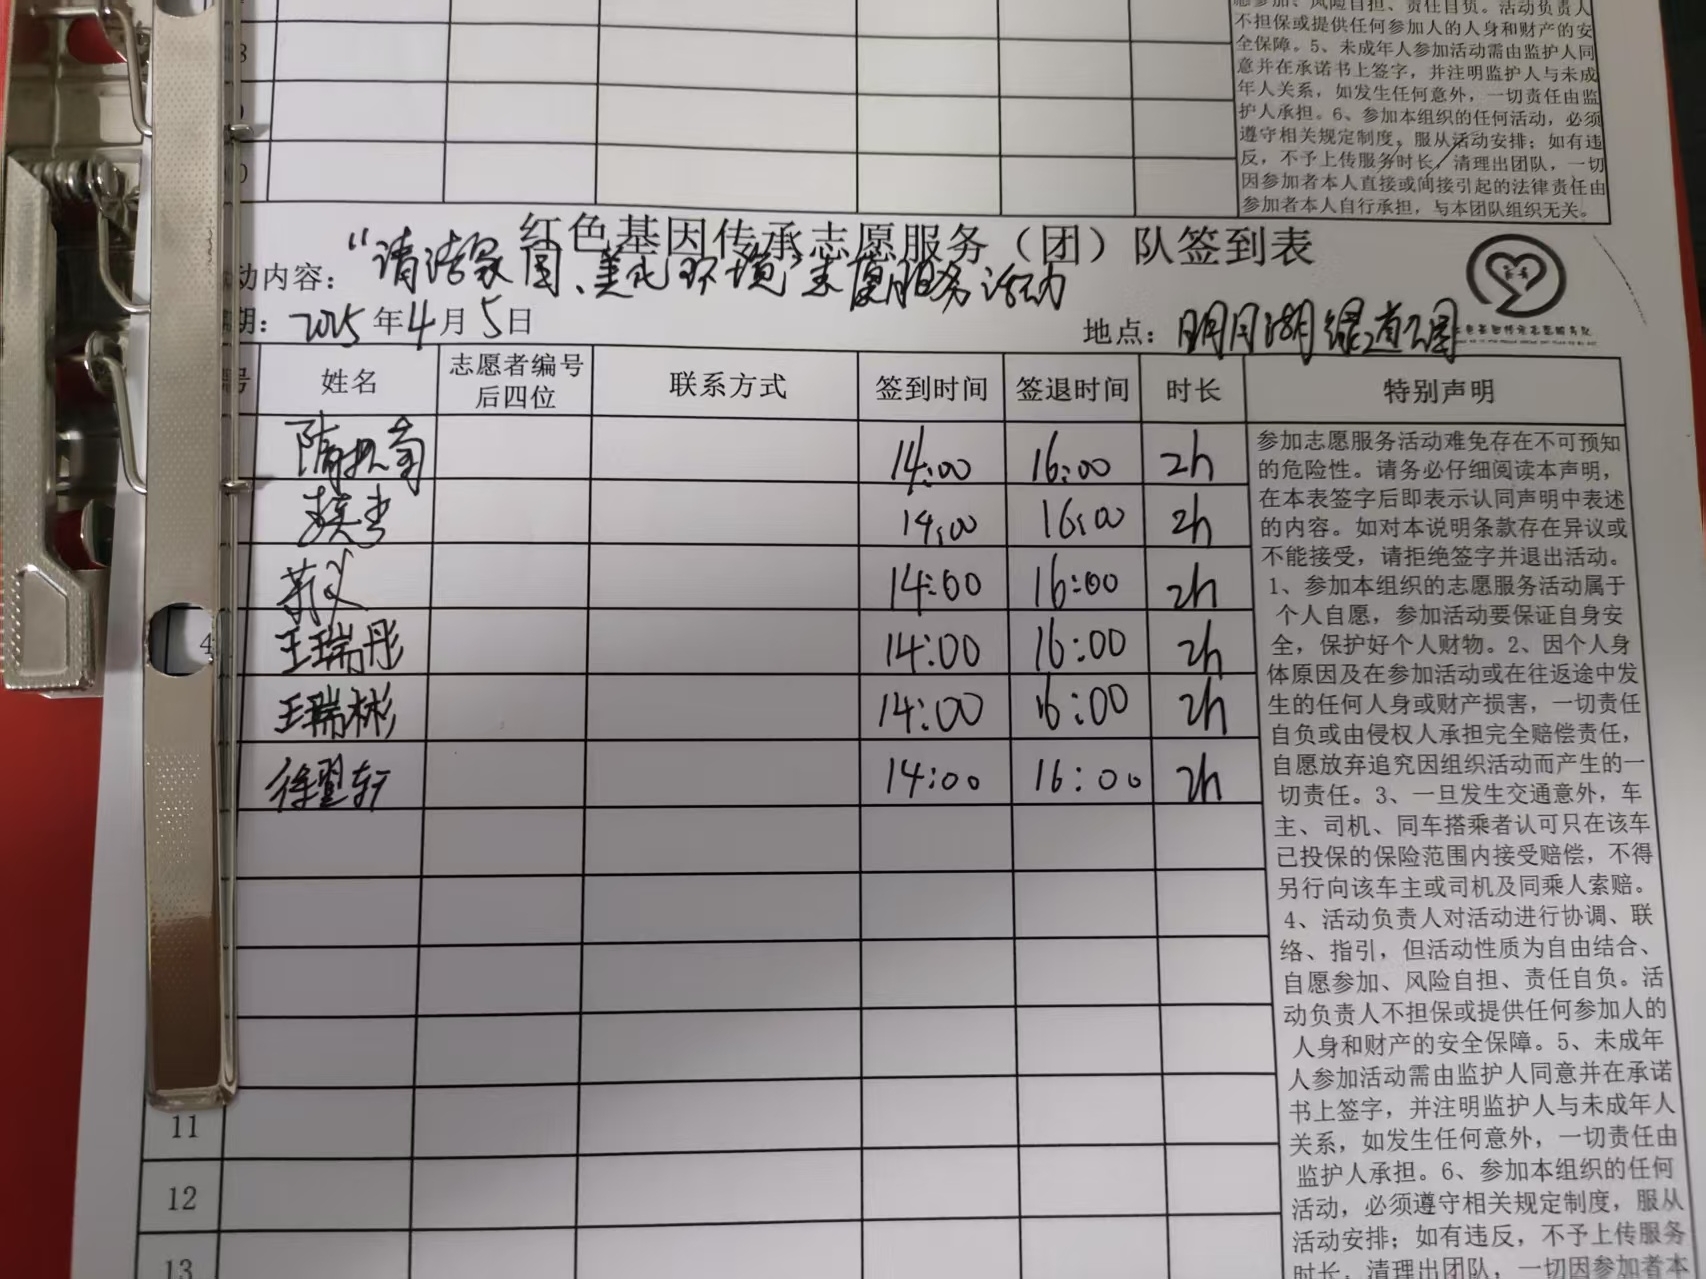 愿参加、风险自担、责任自负。活动负责人
不担保或提供任何参加人的人身和财产的安
全保障。5、未成年人参加活动需由监护人同
意并在承诺书上签字，并注明监护人与未成
年人关系，如发生任何意外，一切责任由监
护人承担。6、参加本组织的任何活动，必须
遵守相关规定制度，服从活动安排；如有违
反，不予上传服务时长，清理出团队，一切
因参加者本人直接或间接引起的法律责任由
参加者本人自行承担，与本团队组织无关。
8
9
0
红色基因传承志愿服务（团）队签到表
动内容：“清洁家园、美化环境”志愿服务活动
期：2025年4月5日 地点：明月湖绿道公园
编号 姓名 志愿者编号后四位 联系方式 签到时间 签退时间 时长 特别声明
14:00 16:00 2h
14:00 16:00 2h
14:00 16:00 2h
4 王瑞彤 14:00 16:00 2h
王瑞彬 14:00 16:00 2h
徐翌轩 14:00 16:00 2h
11
12
13
参加志愿服务活动难免存在不可预知
的危险性。请务必仔细阅读本声明，
在本表签字后即表示认同声明中表述
的内容。如对本说明条款存在异议或
不能接受，请拒绝签字并退出活动。
1、参加本组织的志愿服务活动属于
个人自愿，参加活动要保证自身安
全，保护好个人财物。2、因个人身
体原因及在参加活动或在往返途中发
生的任何人身或财产损害，一切责任
自负或由侵权人承担完全赔偿责任，
自愿放弃追究因组织活动而产生的一
切责任。3、一旦发生交通意外，车
主、司机、同车搭乘者认可只在该车
已投保的保险范围内接受赔偿，不得
另行向该车主或司机及同乘人索赔。
4、活动负责人对活动进行协调、联
络、指引，但活动性质为自由结合、
自愿参加、风险自担、责任自负。活
动负责人不担保或提供任何参加人的
人身和财产的安全保障。5、未成年
人参加活动需由监护人同意并在承诺
书上签字，并注明监护人与未成年人
关系，如发生任何意外，一切责任由
监护人承担。6、参加本组织的任何
活动，必须遵守相关规定制度，服从
活动安排；如有违反，不予上传服务
时长，清理出团队，一切因参加者本